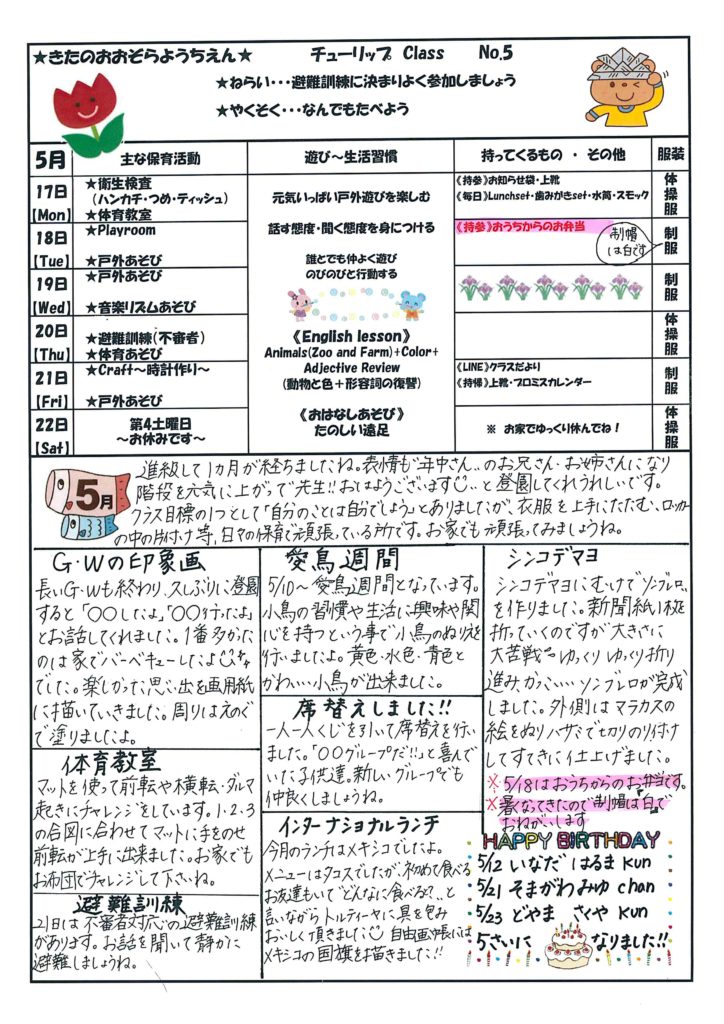 ★きたのおおぞらようちえん★ チューリップ Class No.5
★ねらい・・・避難訓練に決まりよく参加しましょう
★やくそく・・・なんでもたべよう
5月 主な保育活動 遊び～生活習慣 持ってくるもの ・ その他 服装
17日 [Mon]
★衛生検査
(ハンカチ・つめ・ティッシュ)
★体育教室
元気いっぱい戸外遊びを楽しむ
《持参》お知らせ袋・上靴
《毎日》Lunchset・歯みがきset・水筒・スモック
体操服
18日 [Tue]
★Playroom
★戸外あそび
話す態度・聞く態度を身につける
《持参》おうちからのお弁当
制帽は白です
制服
19日 [Wed]
★戸外あそび
★音楽リズムあそび
誰とでも仲よく遊び
のびのびと行動する
制服
20日 [Thu]
★避難訓練(不審者)
★体育あそび
《English lesson》
Animals(Zoo and Farm)+Color+
Adjective Review
(動物と色+形容詞の復讐)
体操服
21日 [Fri]
★Craft～時計作り～
★戸外あそび
《LINE》クラスだより
《持帰》上靴・プロミスカレンダー
制服
22日 [Sat]
第4土曜日
～お休みです～
《おはなしあそび》
たのしい遠足
※ お家でゆっくり休んでね!
体操服
5月
進級して1カ月が経ちましたね。表情も"年中さん"のお兄さん・お姉さんになり
階段を元気に上がって「先生!!おはようございます」と登園してくれうれしいです。
クラス目標の1つとして「自分のことは自分でしよう」とありましたが、衣服を上手にたたむ、ロッカー
の中の片付け等、日々の保育で頑張っている所です。お家でも頑張ってみましょうね。
G・Wの印象画
長いG・Wも終わり、久しぶりに登園
すると「〇〇したよ」「〇〇行ったよ」
とお話してくれました。1番多かった
のは家でバーベキューしたよ
でした。楽しかった思い出を画用紙
に描いていきました。周りはえのぐ
で塗りましたよ。
体育教室
マットを使って前転や横転・ダルマ
起きにチャレンジをしています。1・2・3
の合図に合わせてマットに手をのせ
前転が上手に出来ました。お家でも
お布団でチャレンジして下さいね。
避難訓練
21日は不審者対応の避難訓練
があります。お話を聞いて静かに
避難しましょうね。
愛鳥週間
5/10～愛鳥週間となっています。
小鳥の習慣や生活に興味や関
心を持つという事で小鳥のぬりえを
行いましたよ。黄色・水色・青色と
かわいい小鳥が出来ました。
席替えしました!!
一人一人くじを引いて席替えを行い
ました。「〇〇グループだ!!」と喜んで
いた子供達。新しいグループでも
仲良くしましょうね。
インターナショナルランチ
今月のランチはメキシコでしたよ。
メニューはタコスでしたが、初めて食べる
お友達もいて"どんなに食べる?"と
言いながらトルティーヤに具を包み
おいしく頂きました 自由画帳には
メキシコの国旗を描きました!!
シンコデマヨ
シンコデマヨにむけて"ソンブレロ"
を作りました。新聞紙1枚
折っていくのですが大きさに
大苦戦 ゆっくりゆっくり折り
進みかっこいいソンブレロが完成
しました。外側はマラカスの
絵をぬりハサミで切りのり付け
してすてきに仕上げました。
※5/18はおうちからのお弁当です。
※暑くなってきたので制帽は白で
おねがいします
HAPPY BIRTHDAY
5/12 いなだ はるま kun
5/21 そまがわ みゆ chan
5/23 どやま さくや kun
5さいに なりました!!